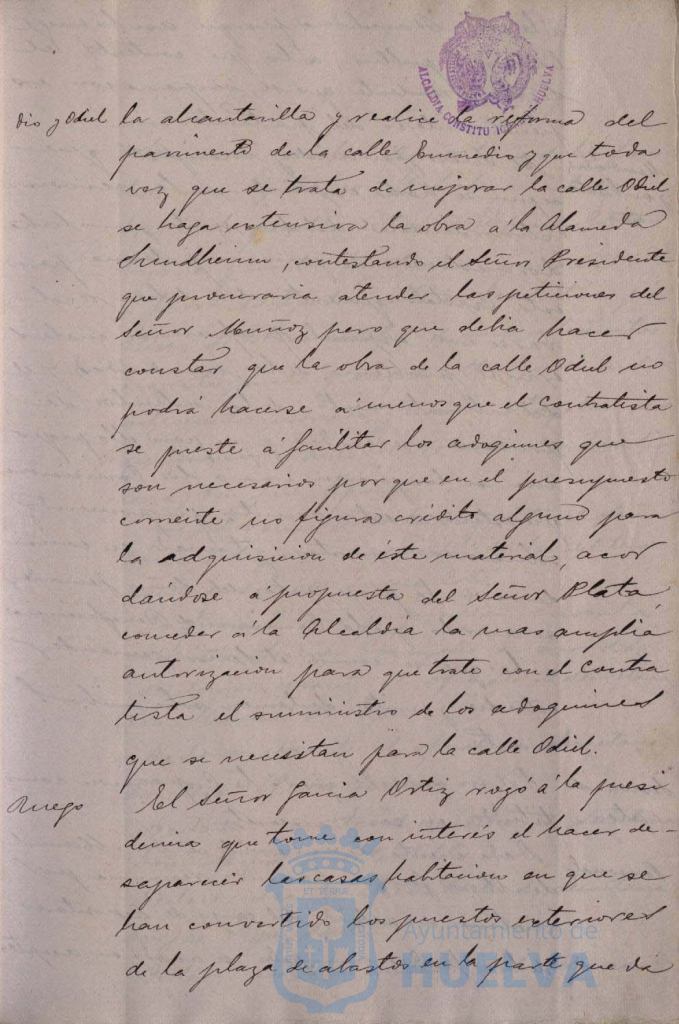 ALCALDIA CONSTITUCIONAL HUELVA
dio y Odiel
la alcantarilla y realice la reforma del
pavimento de la calle Enmedio y que toda
vez que se trata de mejorar la calle Odiel
se haga extensiva la obra á la Alameda
Sundheim, contestando el Señor Presidente
que procuraria atender las peticiones del
Señor Muñoz pero que debia hacer
constar que la obra de la calle Odiel no
podrá hacerse á menos que el contratista
se preste á facilitar los adoquines que
son necesarios por que en el presupuesto
corriente no figura crédito alguno para
la adquisicion de éste material, acor
dándose á propuesta del Señor Plata,
conceder á la Alcaldia la mas amplia
autorizacion para que trate con el contra
tista el suministro de los adoquines
que se necesitan para la calle Odiel.
Ruego
El Señor Garcia Ortiz rogó á la presi
dencia que tome con interés el hacer de-
saparecer las casas habitacion en que se
han convertido los puestos exteriores
de la plaza de abastos en la parte que dá
Ayuntamiento de
HUELVA